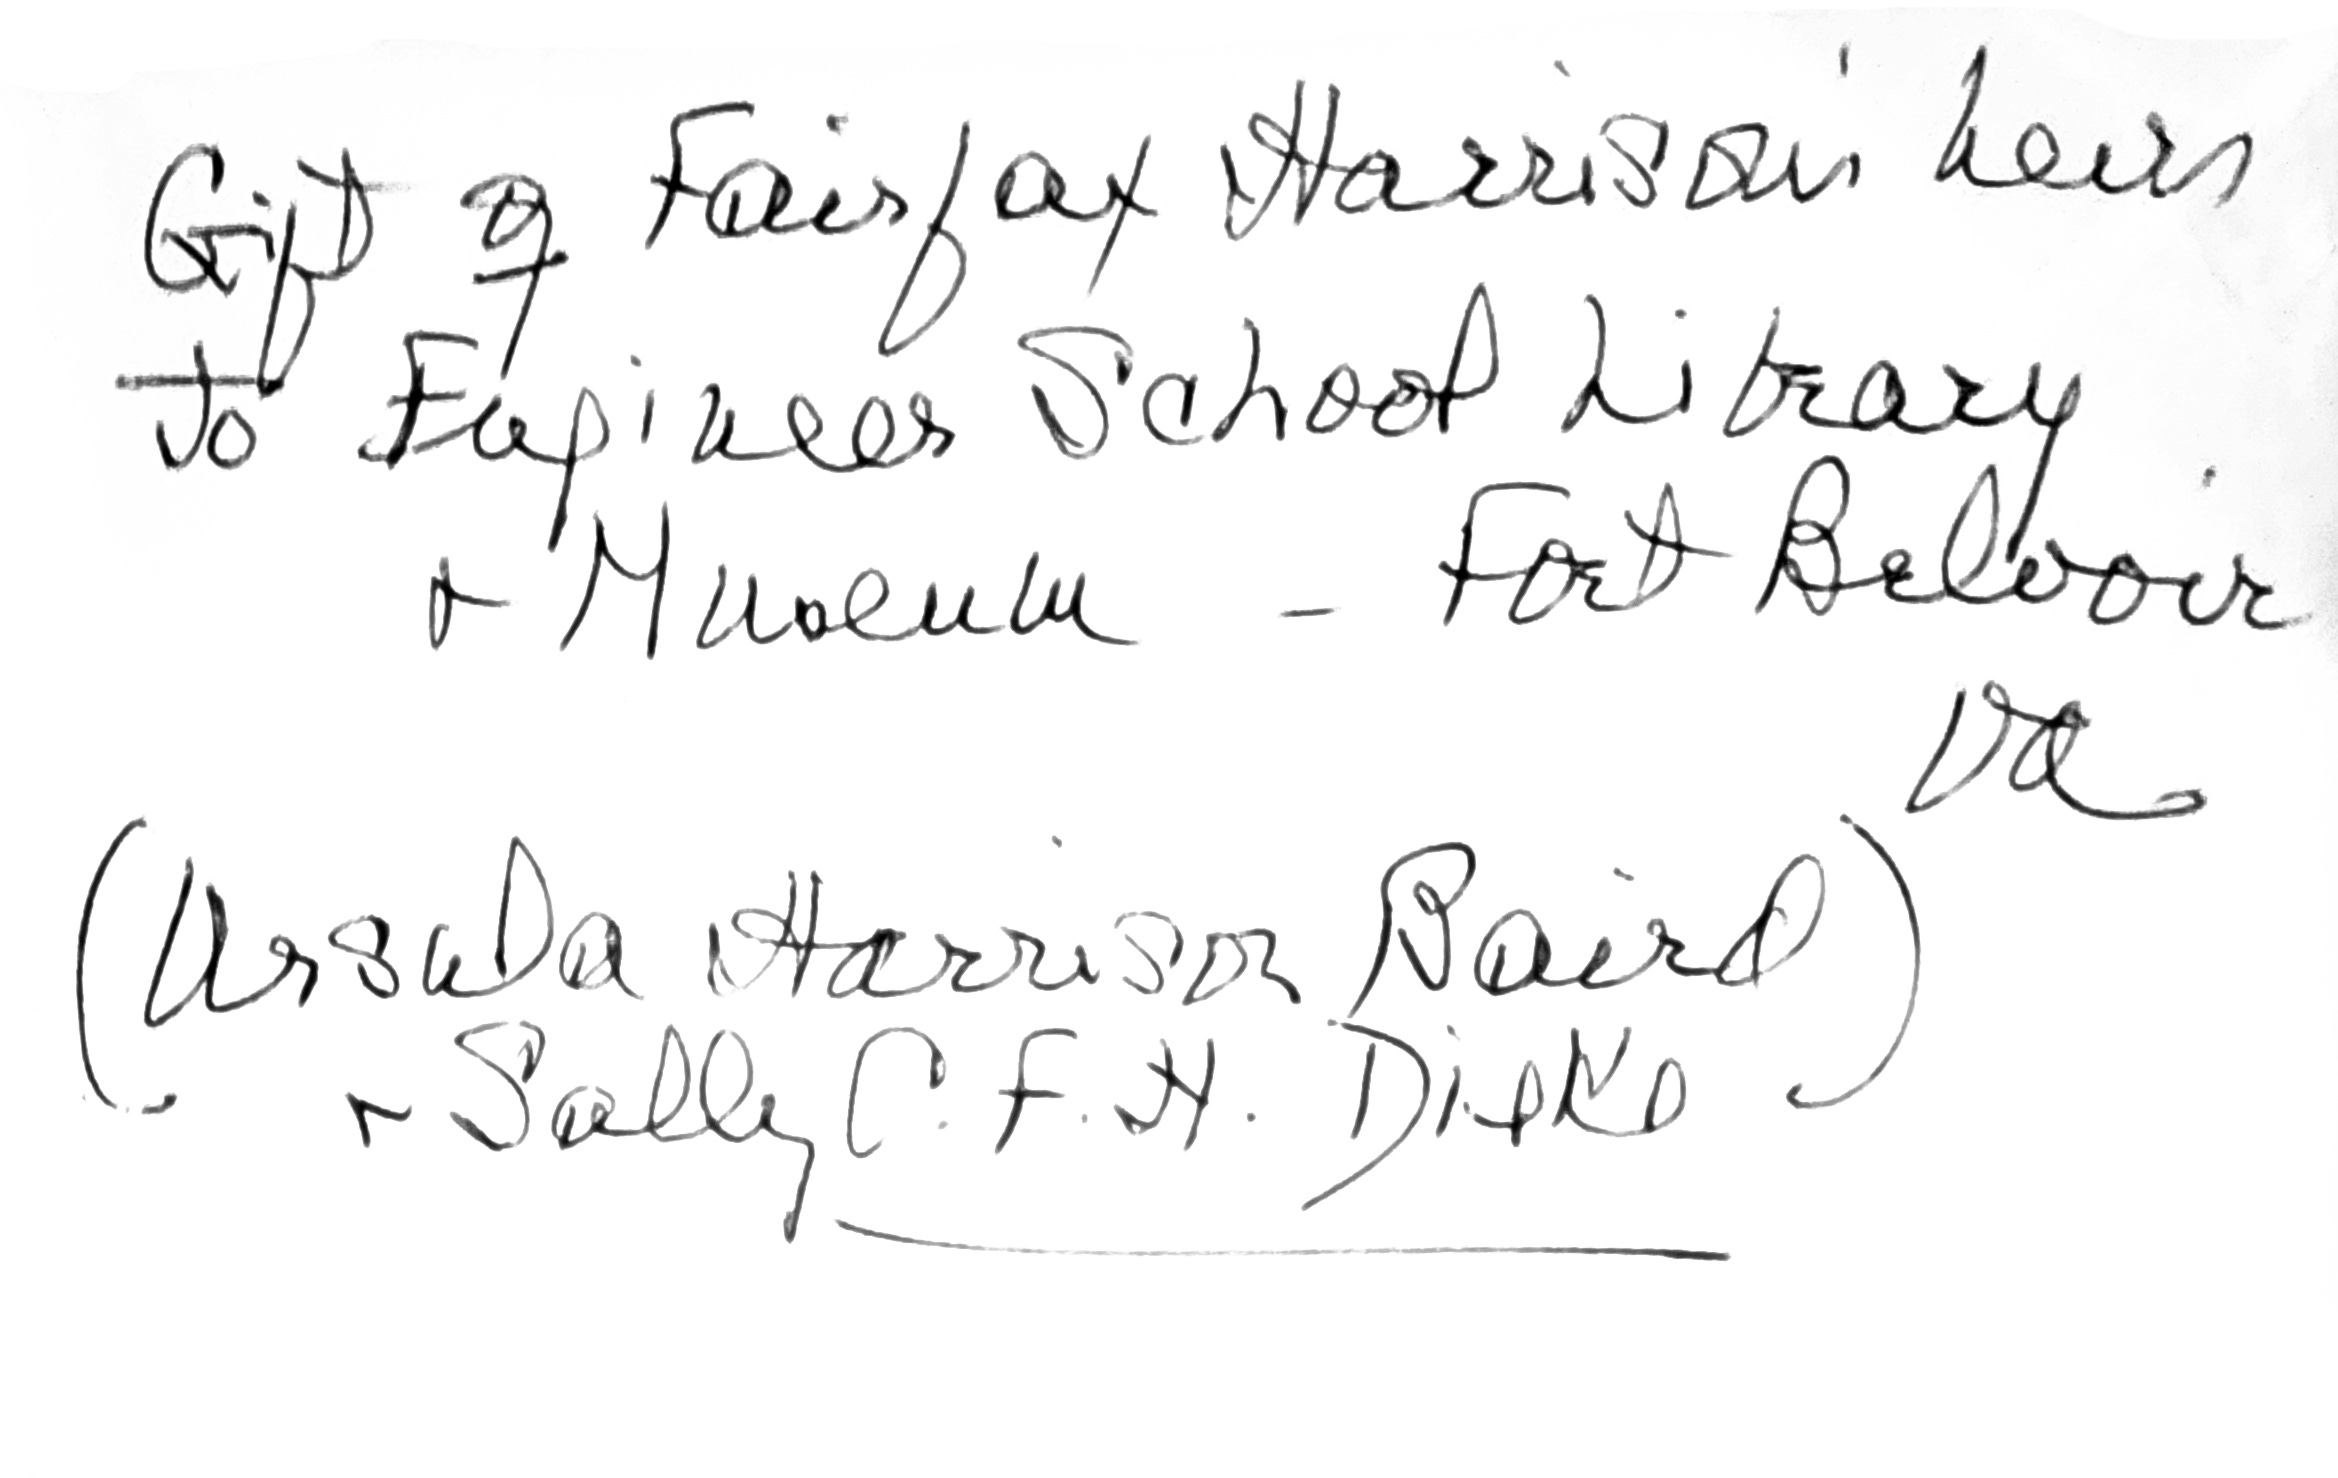 Gift of Fairfax Harrison's heirs
To Engineer School Library
& Museum - Fort Belvoir
Va
(Ursula Harrison Baird)
& Sally C. F. H.